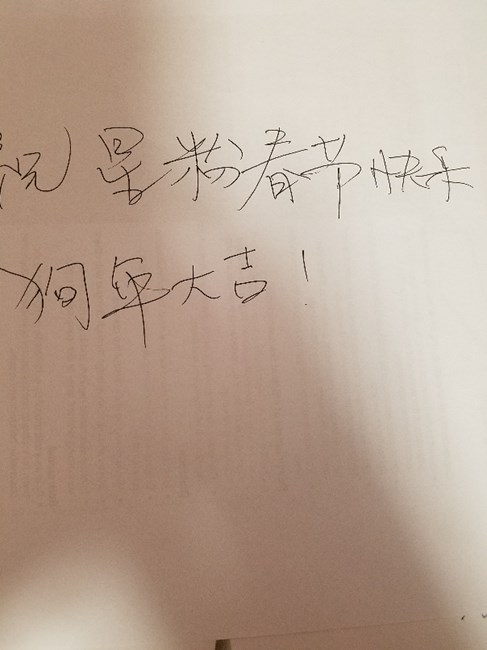 祝星粉春节快乐
狗年大吉！